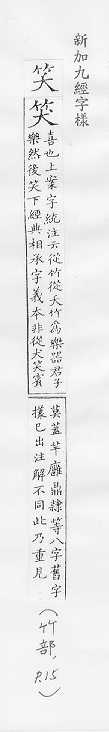 新加九經字樣
笑笑
喜也上案字統注云從竹從夭竹爲樂器君子
樂然後笑下經典相承字義本非從犬笑賓
莫蓋芉廱鼎隸等八字舊字
樣已出注解不同此乃重見
(竹部, P.15)